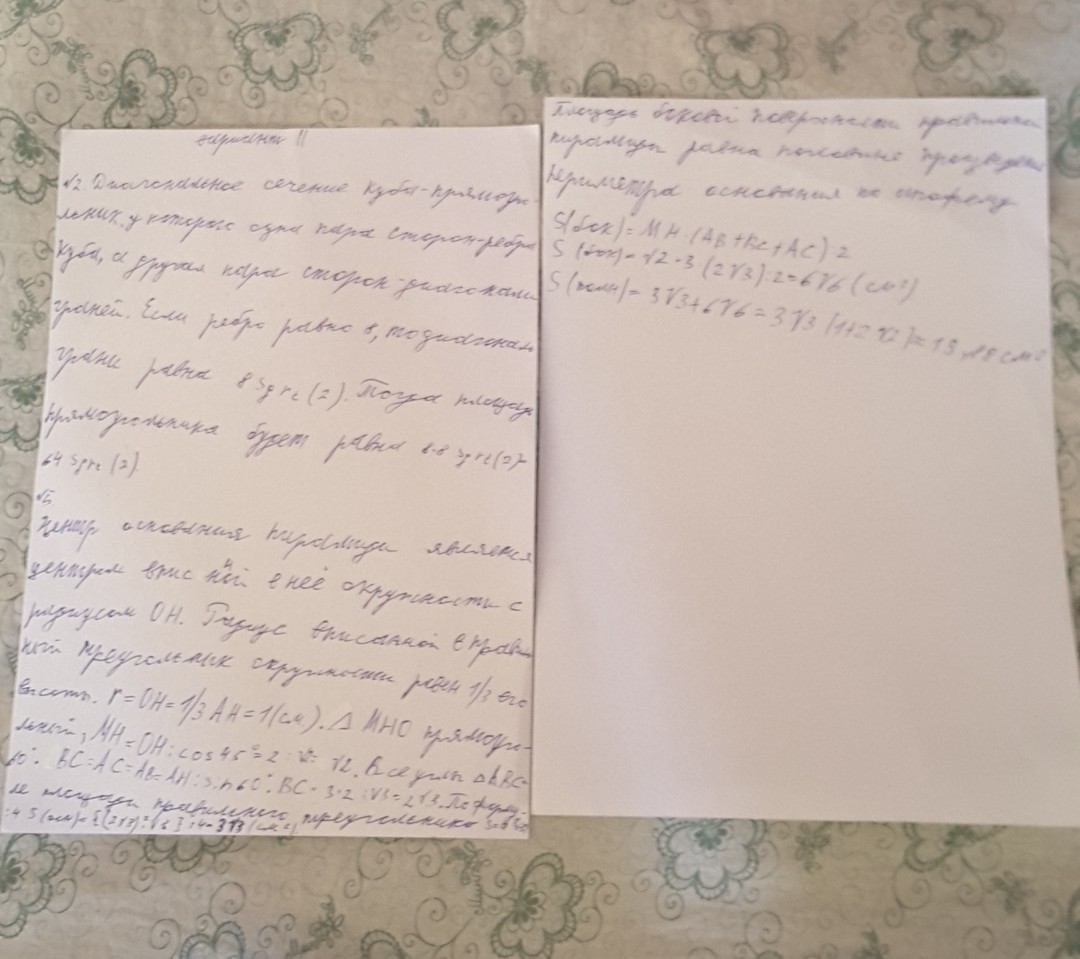 вариант II
√2. Диагональное сечение куба-прямоуго-
льник, у которого одна пара сторон-ребра
куба, а другая пара сторон-диагонали
граней. Если ребро равно 8, то диагональ
грани равна 8 sqrt(2). Тогда площадь
прямоугольника будет равна 8·8 sqrt(2)=
64 sqrt(2).
√5
Центр основания пирамиды является
центром впис ной в неё окружности с
радиусом OH. Радиус вписанной в правиль
ный треугольник окружности равен 1/3 его
высоты. r=OH=1/3 AH=1(см). Δ MHO прямоуго-
льный, MH=OH:cos45°= √2. Все углы ΔABC-
60°. BC=AC=AB=AH:sin60°. BC=3·2:√3=2√3. По форму
ле площади правильного треугольника
:4 S(осн)=[(2√3)²·√3]:4=3√3(см²)
Площадь боковой поверхности правильной
пирамиды равна половине произведения
периметра основания на апофему
S(бок)=MH·(AB+BC+AC):2
S(бок)=√2·3(2√3):2=6√6(см²)
S(полн)=3√3+6√6=3√3(1+2√2)≈19,88см²